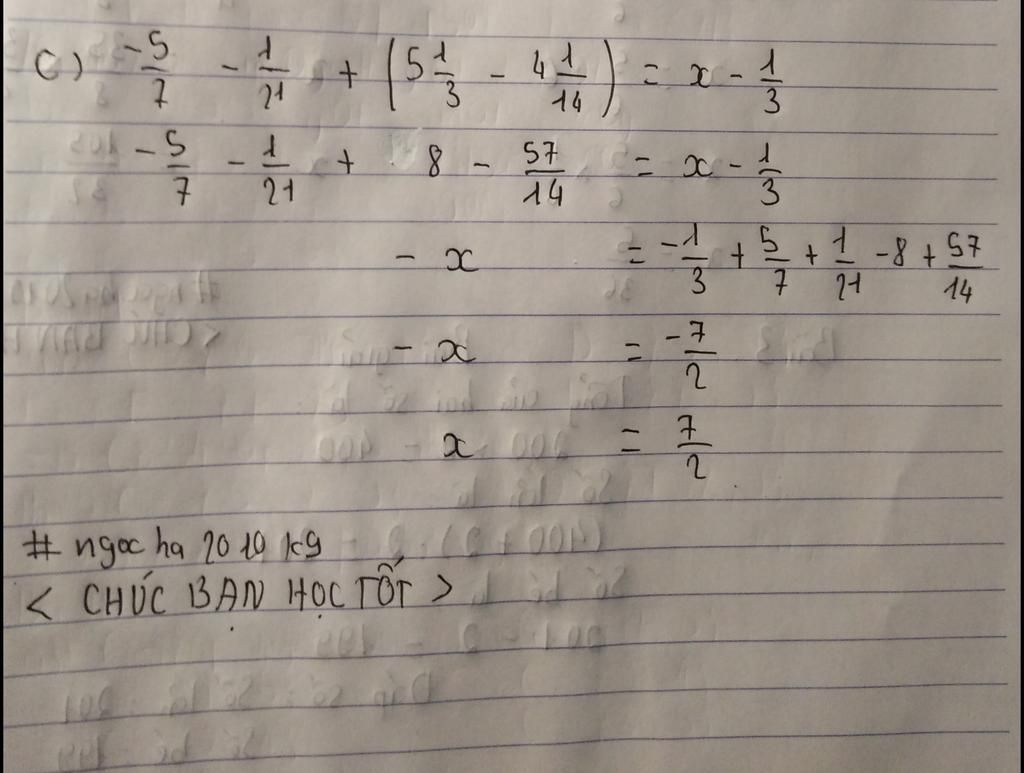 c) -5/7 - 1/21 + (5 1/3 - 4 1/14) = x - 1/3
-5/7 - 1/21 + 8 - 57/14 = x - 1/3
- x = -1/3 + 5/7 + 1/21 - 8 + 57/14
- x = -7/2
x = 7/2
# ngoc ha 2010 kg
< CHÚC BẠN HỌC TỐT >